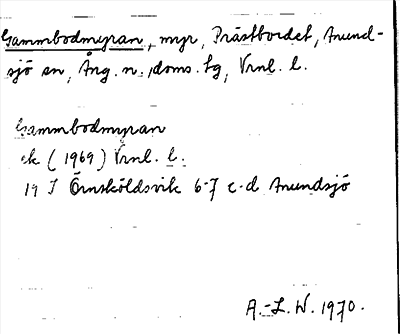 Gammbodmyran, myr, Prästbordet, Anund-
sjö sn, Ång. n., doms. tg, Vrnl. l.
Gammbodmyran
ek (1969) Vrnl. l.
19 I Örnsköldsvik 6-7 c-d Anundsjö
A.-L. W. 1970.